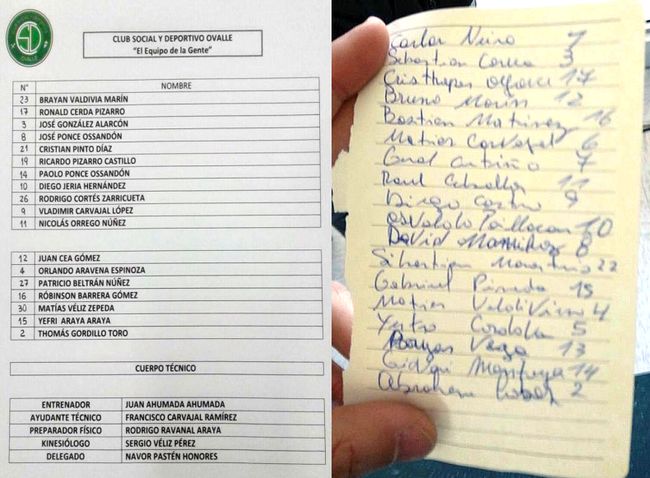 CLUB SOCIAL Y DEPORTIVO OVALLE
"El Equipo de la Gente"
OVALLE
N° NOMBRE
23 BRAYAN VALDIVIA MARÍN
17 RONALD CERDA PIZARRO
3 JOSÉ GONZÁLEZ ALARCÓN
8 JOSÉ PONCE OSSANDÓN
21 CRISTIAN PINTO DÍAZ
19 RICARDO PIZARRO CASTILLO
14 PAOLO PONCE OSSANDÓN
10 DIEGO JERIA HERNÁNDEZ
26 RODRIGO CORTÉS ZARRICUETA
9 VLADIMIR CARVAJAL LÓPEZ
11 NICOLÁS ORREGO NÚÑEZ
12 JUAN CEA GÓMEZ
4 ORLANDO ARAVENA ESPINOZA
27 PATRICIO BELTRÁN NÚÑEZ
16 RÓBINSON BARRERA GÓMEZ
30 MATÍAS VÉLIZ ZEPEDA
15 YEFRI ARAYA ARAYA
2 THOMÁS GORDILLO TORO
CUERPO TÉCNICO
ENTRENADOR JUAN AHUMADA AHUMADA
AYUDANTE TÉCNICO FRANCISCO CARVAJAL RAMÍREZ
PREPARADOR FÍSICO RODRIGO RAVANAL ARAYA
KINESIÓLOGO SERGIO VÉLIZ PÉREZ
DELEGADO NAVOR PASTÉN HONORES
Carlos 1
Sebastian Correa 3
17
Bruno Marin 12
Bastian Martinez 16
Matias Carvajal 6
7
Raul Ceballos 11
Diego Castro 9
Osvaldo Paillacan 10
David 8
Sebastian 22
Gabriel Pineda 15
Matias 4
Cordoba 5
Vega 13
14
Abraham 2